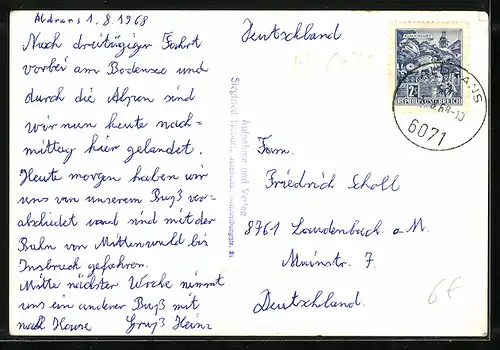 Aldrans 1.8.1968
Nach dreitägiger Fahrt
vorbei am Bodensee und
durch die Alpen sind
wir nun heute nach-
mittag hier gelandet.
Heute morgen haben wir
uns von unserem Buß ver-
abschiedet und sind mit der
Bahn von Mittenwald bis
Insbruck gefahren.
Mitte nächster Woche nimmt
uns ein anderer Buß mit
nach Hause Gruß Heinz
Aufnahme und Verlag
Siegfried
Deutschland
REPUBLIK ÖSTERREICH
6071
Fam.
Friedrich Scholl
8761 Laudenbach a.M.
Mainstr. 7
Deutschland